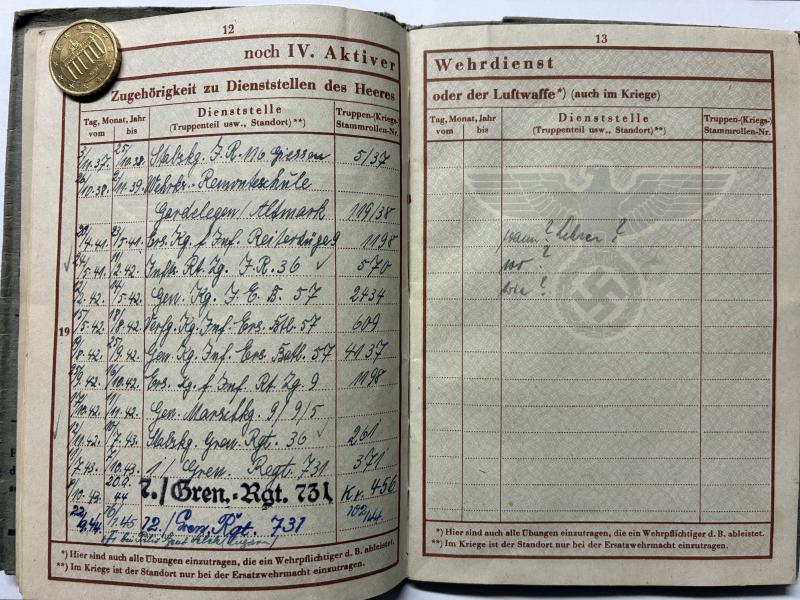 12
noch IV. Aktiver
Zugehörigkeit zu Dienststellen des Heeres
Tag, Monat, Jahr
vom bis
Dienststelle
(Truppenteil usw., Standort) **)
Truppen-(Kriegs-)
Stammrollen-Nr.
3/11.37. 25/10.38. Stabskg. J.R. 116 Giessen 5/37
26/10.38. 2/11.39. Wehrkr.-Remonteschule
Gardelegen/Altmark 119/38
20/4.41. 23/5.41. Ers. Kg. f. Inf. Reiterzüge 9 1198
24/5.41. 11/2.42. Inftr. Rt. Zg. J.R. 36 570
12/2.42. 14/5.42. Gen. Kg. J.E.B. 57 2434
15/5.42. 18/8.42. Verfg. Kg. Inf. Ers. Btl. 57 609
19
19/8.42. 25/9.42. Gen. Kg. Inf. Ers. Batl. 57 4137
25/9.42. 16/10.42. Ers. Kg. f. Inf. Rt. Zg. 9 1198
17/10.42. 11/11.42. Gen. Marschkg. 9/9/5
12/11.42. 10/7.43. Stabskg. Gren. Rgt. 36 261
11/7.43. 7/10.43. 1/ Gren. Regt. 731 371
8/10.43. 20.9./44 7./Gren.-Rgt. 731 Kr. 456
22/9.44. 16/1.45 12./Gren. Rgt. 731 102/44.
*) Hier sind auch alle Übungen einzutragen, die ein Wehrpflichtiger d. B. ableistet.
**) Im Kriege ist der Standort nur bei der Ersatzwehrmacht einzutragen.
13
Wehrdienst
oder der Luftwaffe*) (auch im Kriege)
Tag, Monat, Jahr
vom bis
Dienststelle
(Truppenteil usw., Standort) **)
Truppen-(Kriegs-)
Stammrollen-Nr.
wann?
wo?
wie?
*) Hier sind auch alle Übungen einzutragen, die ein Wehrpflichtiger d. B. ableistet.
**) Im Kriege ist der Standort nur bei der Ersatzwehrmacht einzutragen.